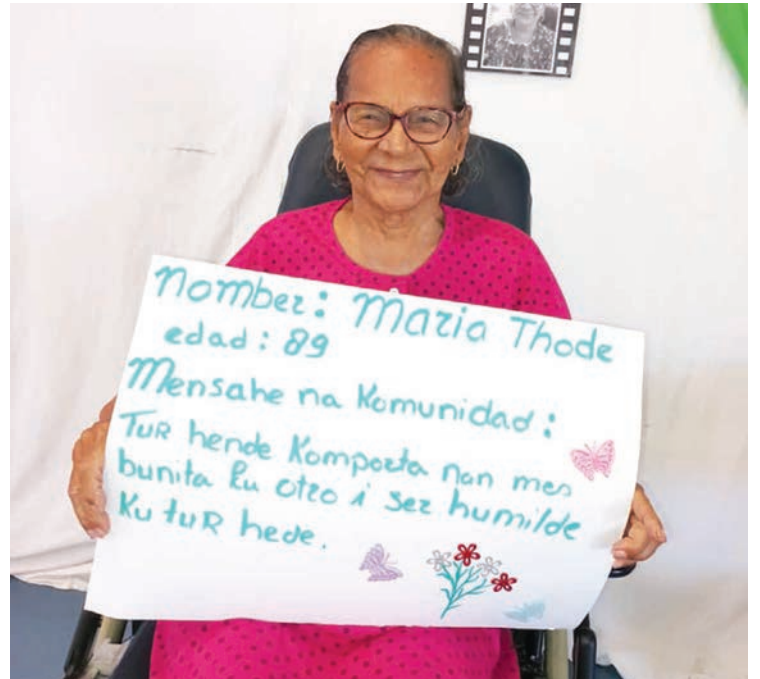 Nomber: Maria Thode
edad: 89
Mensahe na Komunidad:
Tur hende Komporta nan mes
bunita ku otro i ser humilde
Ku tuR hede.